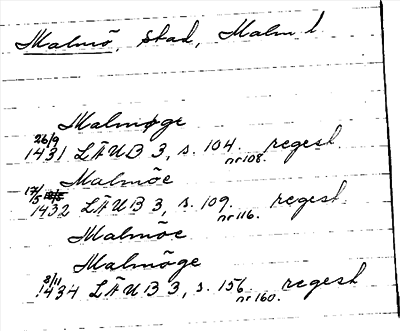 Malmö, stad, Malm l
Malmøge
26/9
1431 LÄUB 3, s. 104. regest
nr 108.
Malmöe
17/5
1432 LÄUB 3, s. 109. regest
nr 116.
Malmöe
Malmöge
8/11
1434 LÄUB 3, s. 156 regest
nr 160.